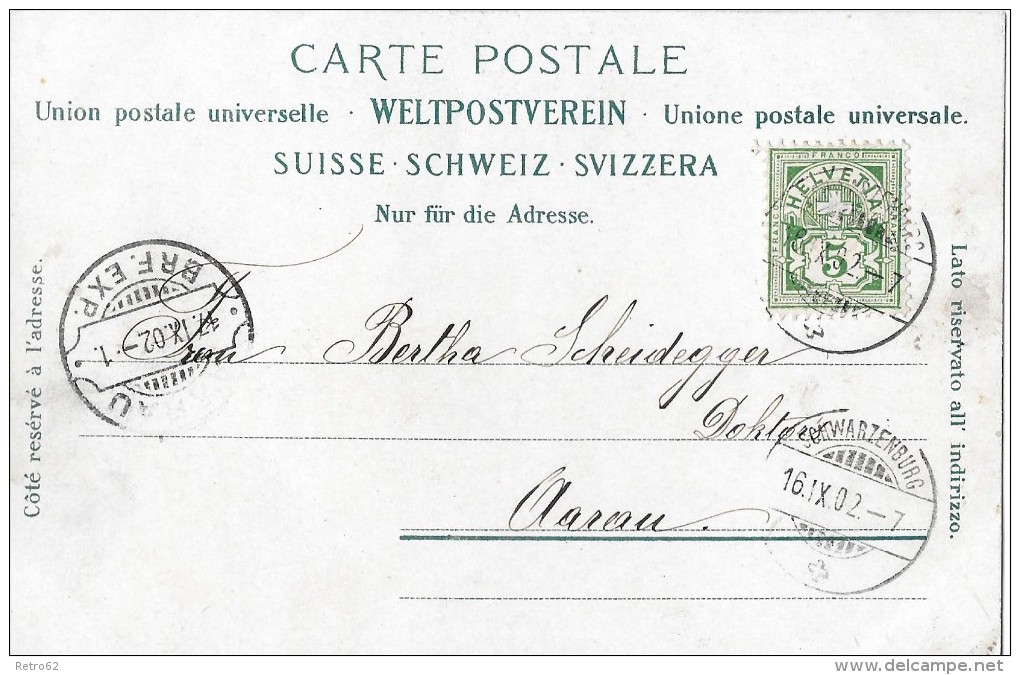 CARTE POSTALE
Union postale universelle · WELTPOSTVEREIN · Unione postale universale.
SUISSE · SCHWEIZ · SVIZZERA
Nur für die Adresse.
FRANCO
FRANCO
HELVETIA
5
Côté resérvé à l'adresse.
Lato riservato all' indirizzo.
BRF. EXP.
17.IX.02.-1.
AARAU
Frau Bertha Scheidegger
Doktors
Aarau.
SCHWARZENBURG
16.IX.02.-7
Retro62
www.delcampe.net